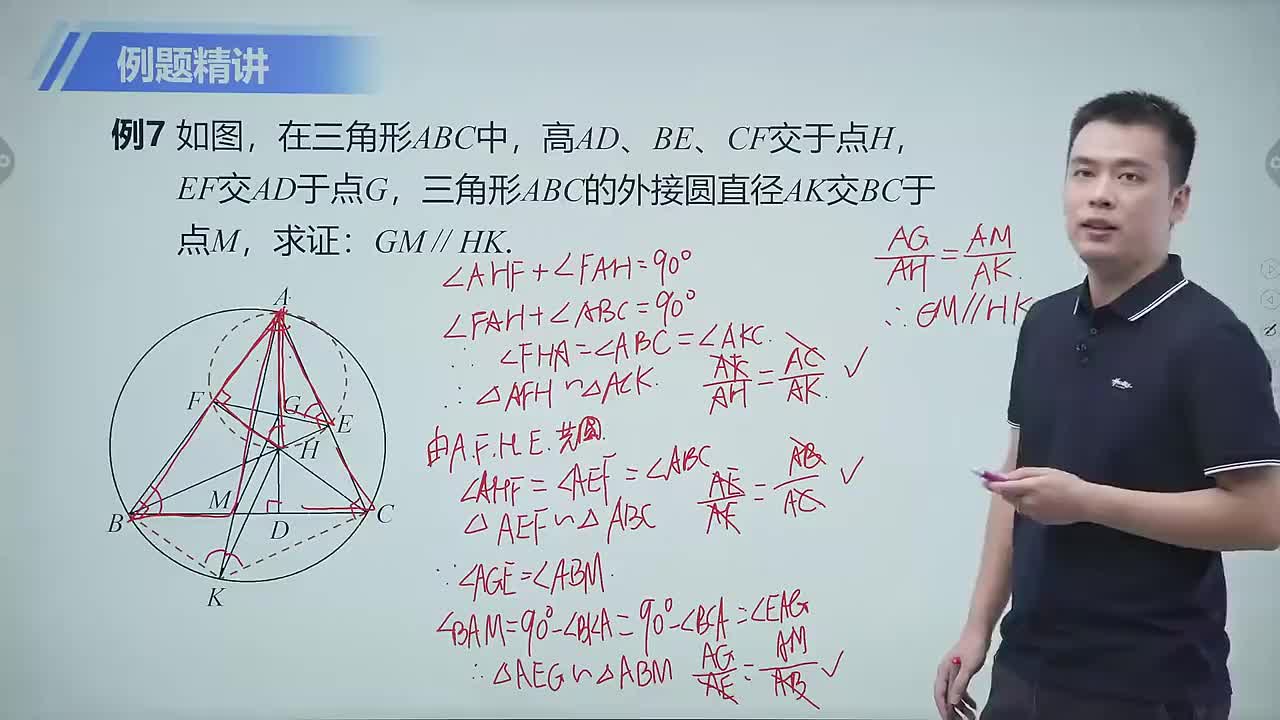 例题精讲
例7 如图，在三角形ABC中，高AD、BE、CF交于点H，
EF交AD于点G，三角形ABC的外接圆直径AK交BC于
点M，求证：GM // HK.
∠AHF+∠FAH=90°
∠FAH+∠ABC=90°
∴ ∠FHA=∠ABC=∠AKC.
∴ △AFH∽△ACK. AF/AH=AC/AK. ✓
由A.F.H.E.共圆.
∠AHF=∠AEF=∠ABC
△AEF∽△ABC AE/AF=AB/AC ✓
∵∠AGE=∠ABM.
∠BAM=90°-∠BKA=90°-∠BCA=∠EAG
∴△AEG∽△ABM AG/AE=AM/AB ✓
AG/AH=AM/AK.
∴GM//HK
A
F
G
E
H
B
M
D
C
K